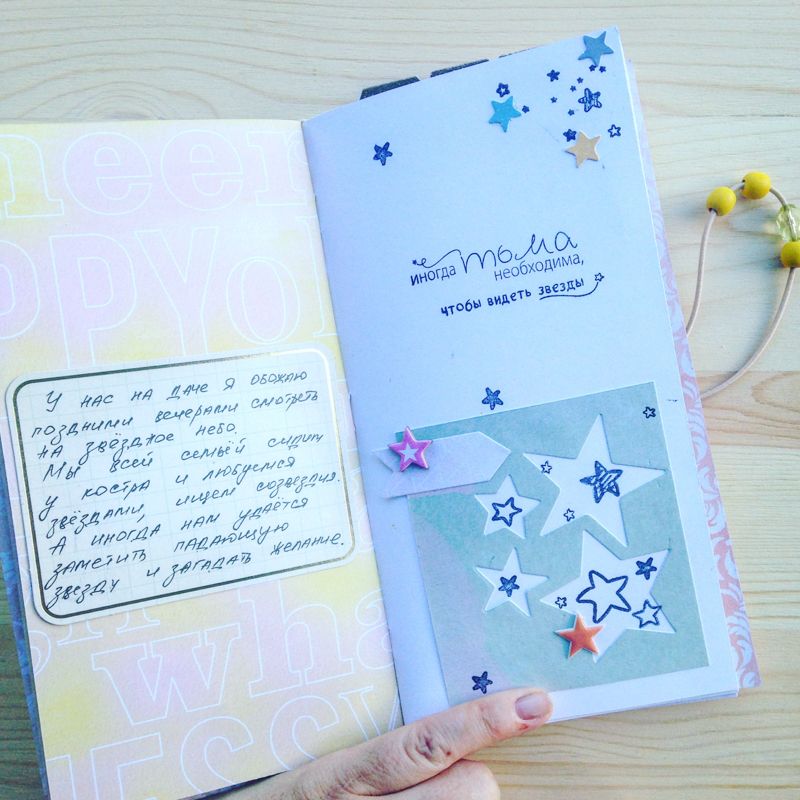 heer
PPYou
У НАС НА ДАЧЕ Я ОБОЖАЮ
ПОЗДНИМИ ВЕЧЕРАМИ СМОТРЕТЬ
НА ЗВЁЗДНОЕ НЕБО.
МЫ ВСЕЙ СЕМЬЁЙ СИДИМ
У КОСТРА И ЛЮБУЕМСЯ
ЗВЁЗДАМИ, ИЩЕМ СОЗВЕЗДИЯ.
А ИНОГДА НАМ УДАЁТСЯ
ЗАМЕТИТЬ ПАДАЮЩУЮ
ЗВЕЗДУ И ЗАГАДАТЬ ЖЕЛАНИЕ.
wha
ESSY
иногда тьма
необходима,
чтобы видеть звезды